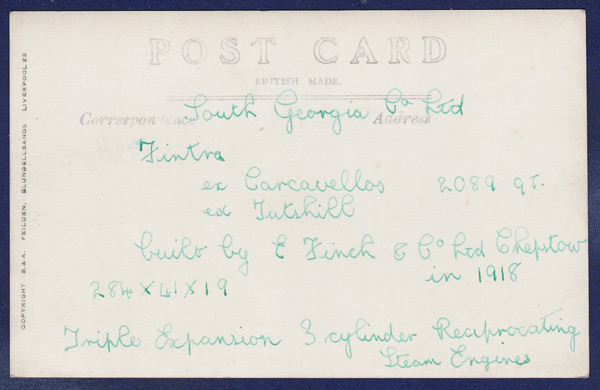 POST CARD
BRITISH MADE.
Correspondence Address
South Georgia Co Ltd
Fintra
ex Carcavellos 2089 gT.
ex Tutshill
built by E Finch & Co Ltd Chepstow
in 1918
284 X 41 X 19
Triple Expansion 3 cylinder Reciprocating
Steam Engines
COPYRIGHT B.& A. FEILDEN, BLUNDELLSANDS LIVERPOOL 23